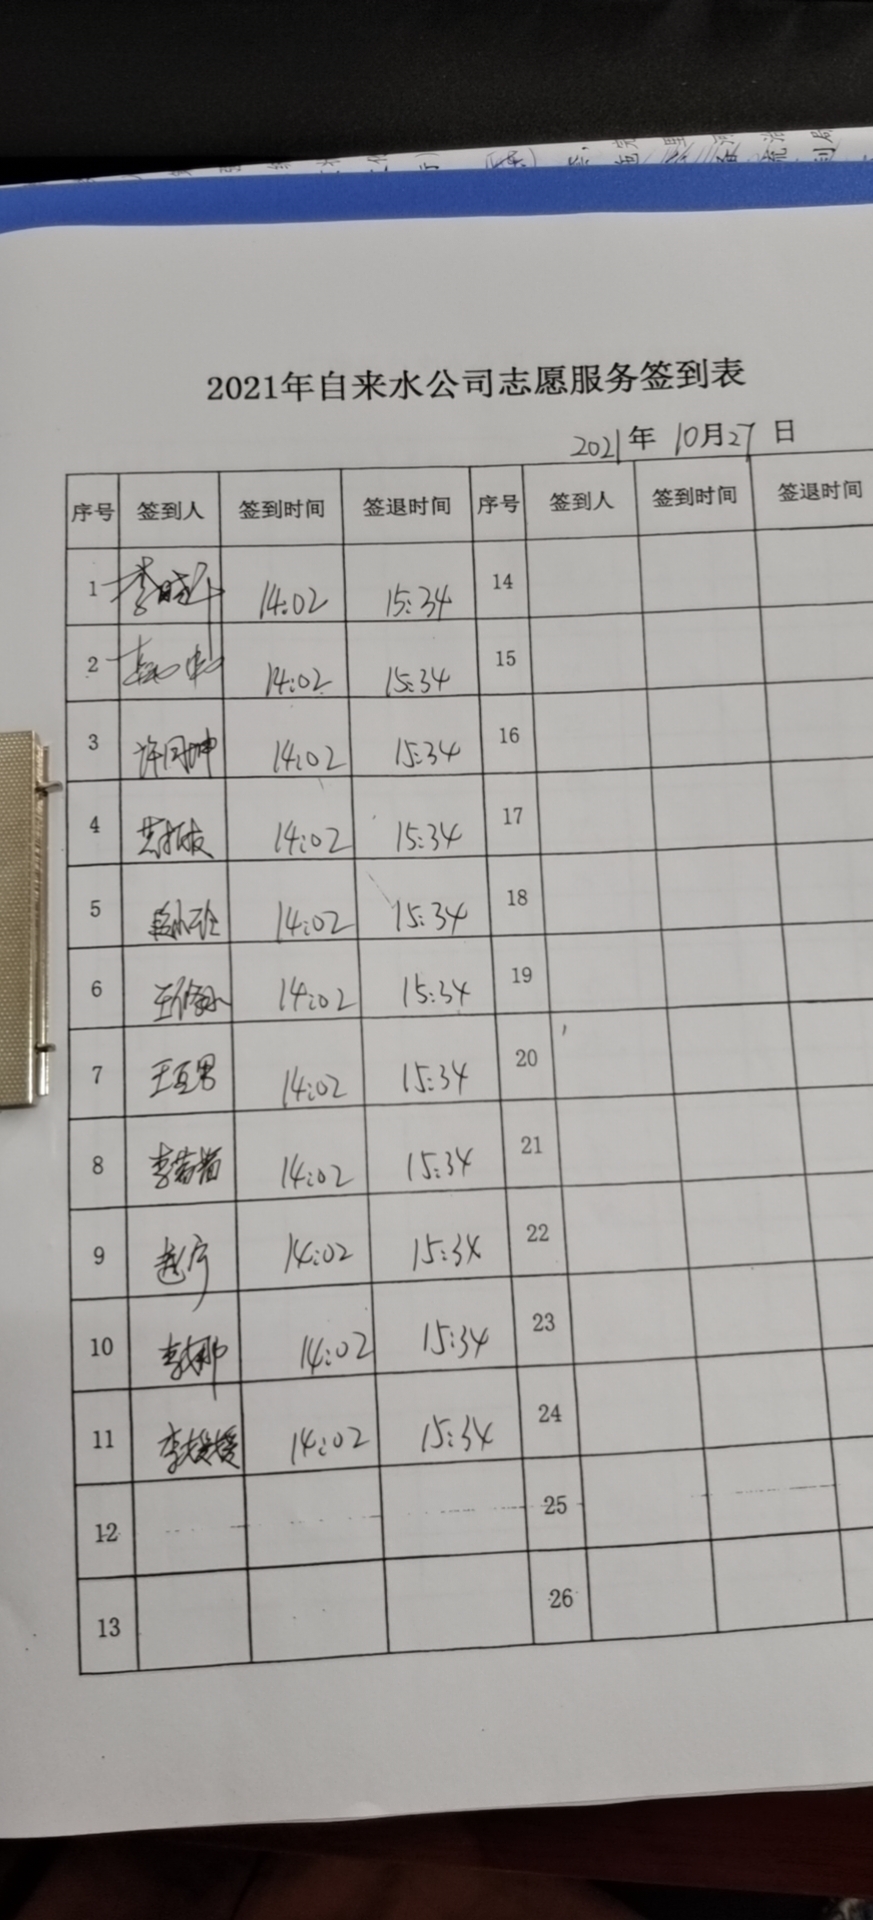 2021年自来水公司志愿服务签到表
2021年 10月27日
序号 签到人 签到时间 签退时间 序号 签到人 签到时间 签退时间
1 14:02 15:34 14
2 14:02 15:34 15
3 14:02 15:34 16
4 14:02 15:34 17
5 14:02 15:34 18
6 14:02 15:34 19
7 14:02 15:34 20
8 14:02 15:34 21
9 14:02 15:34 22
10 李娜 14:02 15:34 23
11 李媛媛 14:02 15:34 24
12 25
13 26